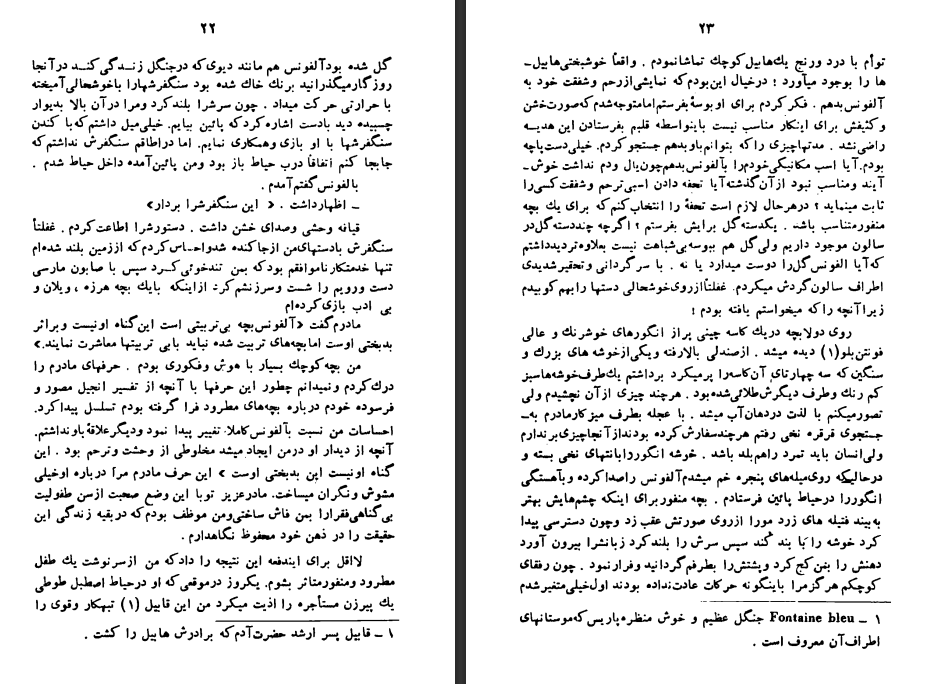 ۲۲
گل شده بود آلفونس هم مانند دیوی که در جنگل زنـدگی کنـد در آنجا
روزگار میگذرانید برنك خاك شده بود سنگفرشها را باخوشحالی آمیخته
با حرارتی حرکت میداد . چون سرش را بلند کرد و مرا در آن بالا بدیوار
چسبیده دید بادست اشاره کرد که پائین بیایم . خیلی میل داشتم که با کندن
سنگفرشها با او بازی و همکاری نمایم . اما در اطاقم سنگفرش نداشتم که
جابجا کنم اتفاقاً درب حیاط باز بود و من پائین آمده داخل حیاط شدم .
بالفونس گفتم آمدم .
ـ اظهارداشت . « این سنگفرش را بردار»
قیافه وحشی وصدای خشن داشت . دستورش را اطاعت کردم . غفلتاً
سنگفرش بادستهای من از جا کنده شد و احساس کردم که از زمین بلند شده‌ام
تنها خدمتکار ناموافقم بود که بمن تندخوئی کـرد سپس با صابون مارسی
دست ورویم را شست وسرزنشم کرد از اینکه بایك بچه هرزه ، ویلان و
بی ادب بازی کرده‌ام
مادرم گفت «آلفونس بچه بی‌تربیتی است این گناه او نیست و براثر
بدبختی اوست اما بچه‌های تربیت شده نباید بابی تربیتها معاشرت نمایند.»
من بچه کوچك بسیار با هوش وفکوری بودم . حرفهای مادرم را
درك کردم و نمیدانم چطور این حرفها با آنچه از تفسیر انجیل مصور و
فرسوده خودم درباره بچه‌های مطرود فرا گرفته بودم تسلسل پیدا کرد.
احساسات من نسبت بآلفونس کاملا تغییر پیدا نمود و دیگر علاقهٔ باو نداشتم.
آنچه از دیدار او در من ایجاد میشد مخلوطی از وحشت و ترحم بود . این
گناه او نیست این بدبختی اوست » این حرف مادرم مرا درباره او خیلی
مشوش ونگران میساخت. مادرعزیز توبا این وضع صحبت از سن طفولیت
بی‌گناهی فقرا را بمن فاش ساختی و من موظف بودم که در بقیه زندگی این
حقیقت را در ذهن خود محفوظ نگاهدارم .
لااقل برای ایندفعه این نتیجه را داد که من از سرنوشت یك طفل
مطرود ومنفور متاثر بشوم. یکروز درموقعی که او در حیاط اصطبل طوطی
یك پیرزن مستأجره را اذیت میکرد من این قابیل (۱) تبهکار وقوی را
۱ ـ قابیل پسر ارشد حضرت آدم که برادرش هابیل را کشت .
۲۳
توأم با درد ورنج یك هابیل کوچك تماشا نمودم . واقعاً خوشبختی هابیل‌ـ
ها را بوجود میآورد ؛ درخیال این بودم که نمایشی از رحم و شفقت خود به
آلفونس بدهم . فکر کردم برای او بوسهٔ بفرستم اما متوجه شدم که صورت خشن
و کثیفش برای اینکار مناسب نیست باینواسطه قلبم بفرستادن این هدیـه
راضی نشد . مدتها چیزی را که بتوانم باو بدهم جستجو کردم. خیلی دست پاچه
بودم. آیا اسب مکانیکی خودم را بآلفونس بدهم چون یال ودم نداشت خوش‌ـ
آیند ومناسب نبود از آن گذشته آیا تحفه دادن اسبی ترحم و شفقت کسی را
ثابت مینماید ؟ درهرحال لازم است تحفهٔ را انتخاب کنم که برای یك بچه
منفور متناسب باشد . یکدسته گل برایش بفرستم ؟ اگر چه چند دسته گل در
سالون موجود داریم ولی گل هم ببوسه بی‌شباهت نیست بعلاوه تردید داشتم
که آیا الفونس گل را دوست میدارد یا نه . با سرگردانی و تحقیر شدیدی
اطراف سالون گردش میکردم. غفلتاً ازروی خوشحالی دستها را بهم کوبیدم
زیرا آنچه را که میخواستم یافته بودم !
روی دولابچه دریك کاسه چینی پر از انگورهای خوشرنك و عالی
فونتن بلو(۱) دیده میشد . ازصندلی بالا رفته و یکی از خوشه های بزرك و
سنگین که سه چهار تای آن کاسه را پر میکرد برداشتم یك طرف خوشه‌ها سبز
کم رنك وطرف دیگرش طلائی شده بود . هرچند چیزی از آن نچشیدم ولی
تصور میکنم با لذت دردهان آب میشد . با عجله بطرف میز کار مادرم به‌ـ
جستجوی قرقره نخی رفتم هرچند سفارش کرده بودند از آنجا چیزی برندارم
ولی انسان باید تمرد را هم بلد باشد . خوشه انگور را بانتهای نخی بسته و
درحالیکه روی میله‌های پنجره خم میشدم آلفونس را صدا کرده و بآهستگی
انگور را در حیاط پائین فرستادم . بچه منفور برای اینکه چشم‌هایش بهتر
به‌بیند فتیله های زرد مو را از روی صورتش عقب زد وچون دسترسی پیدا
کرد خوشه را با بند کند سپس سرش را بلند کرد زبانش را بیرون آورد
دهنش را بمن کج کرد و پشتش را بطرفم گردانید و فرار نمود . چون رفقای
کوچکم هرگز مرا باینگونه حرکات عادت نداده بودند اول خیلی متغیر شدم
۱ ـ Fontaine bleu جنگل عظیم و خوش منظره پاریس که موستانهای
اطراف آن معروف است .